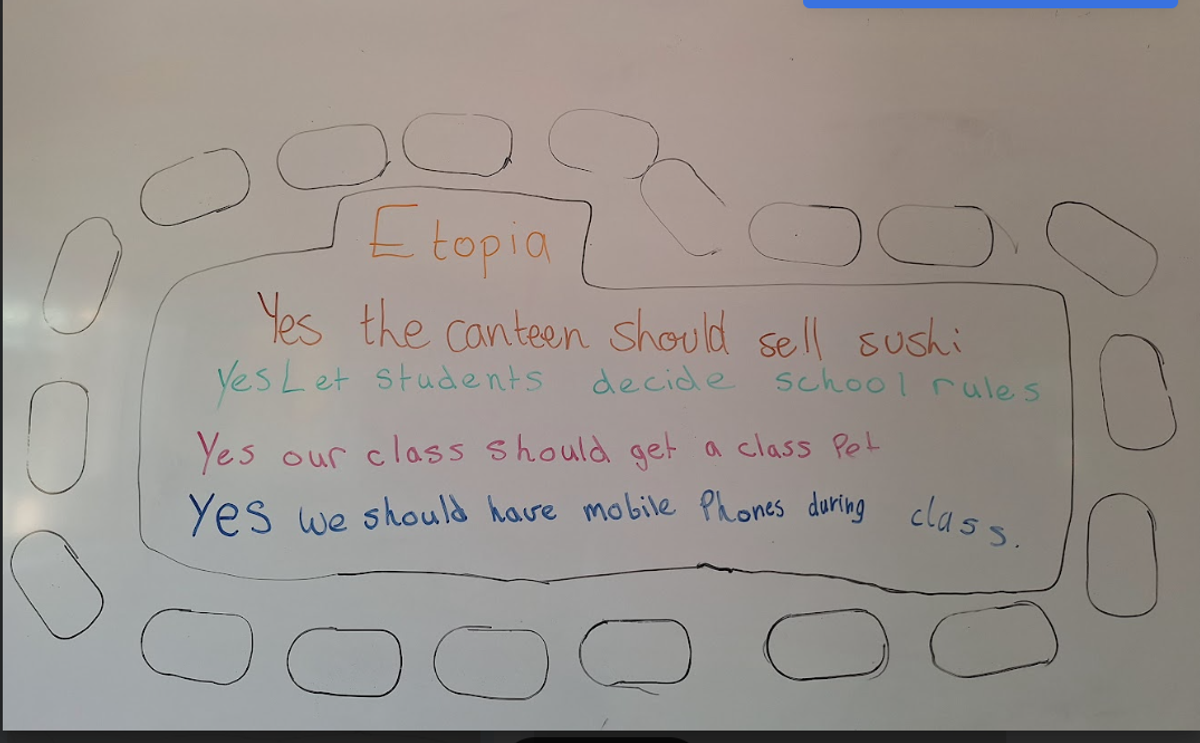 Etopia
Yes the canteen should sell sushi
Yes Let students decide school rules
Yes our class should get a class Pet
Yes we should have mobile Phones during class.